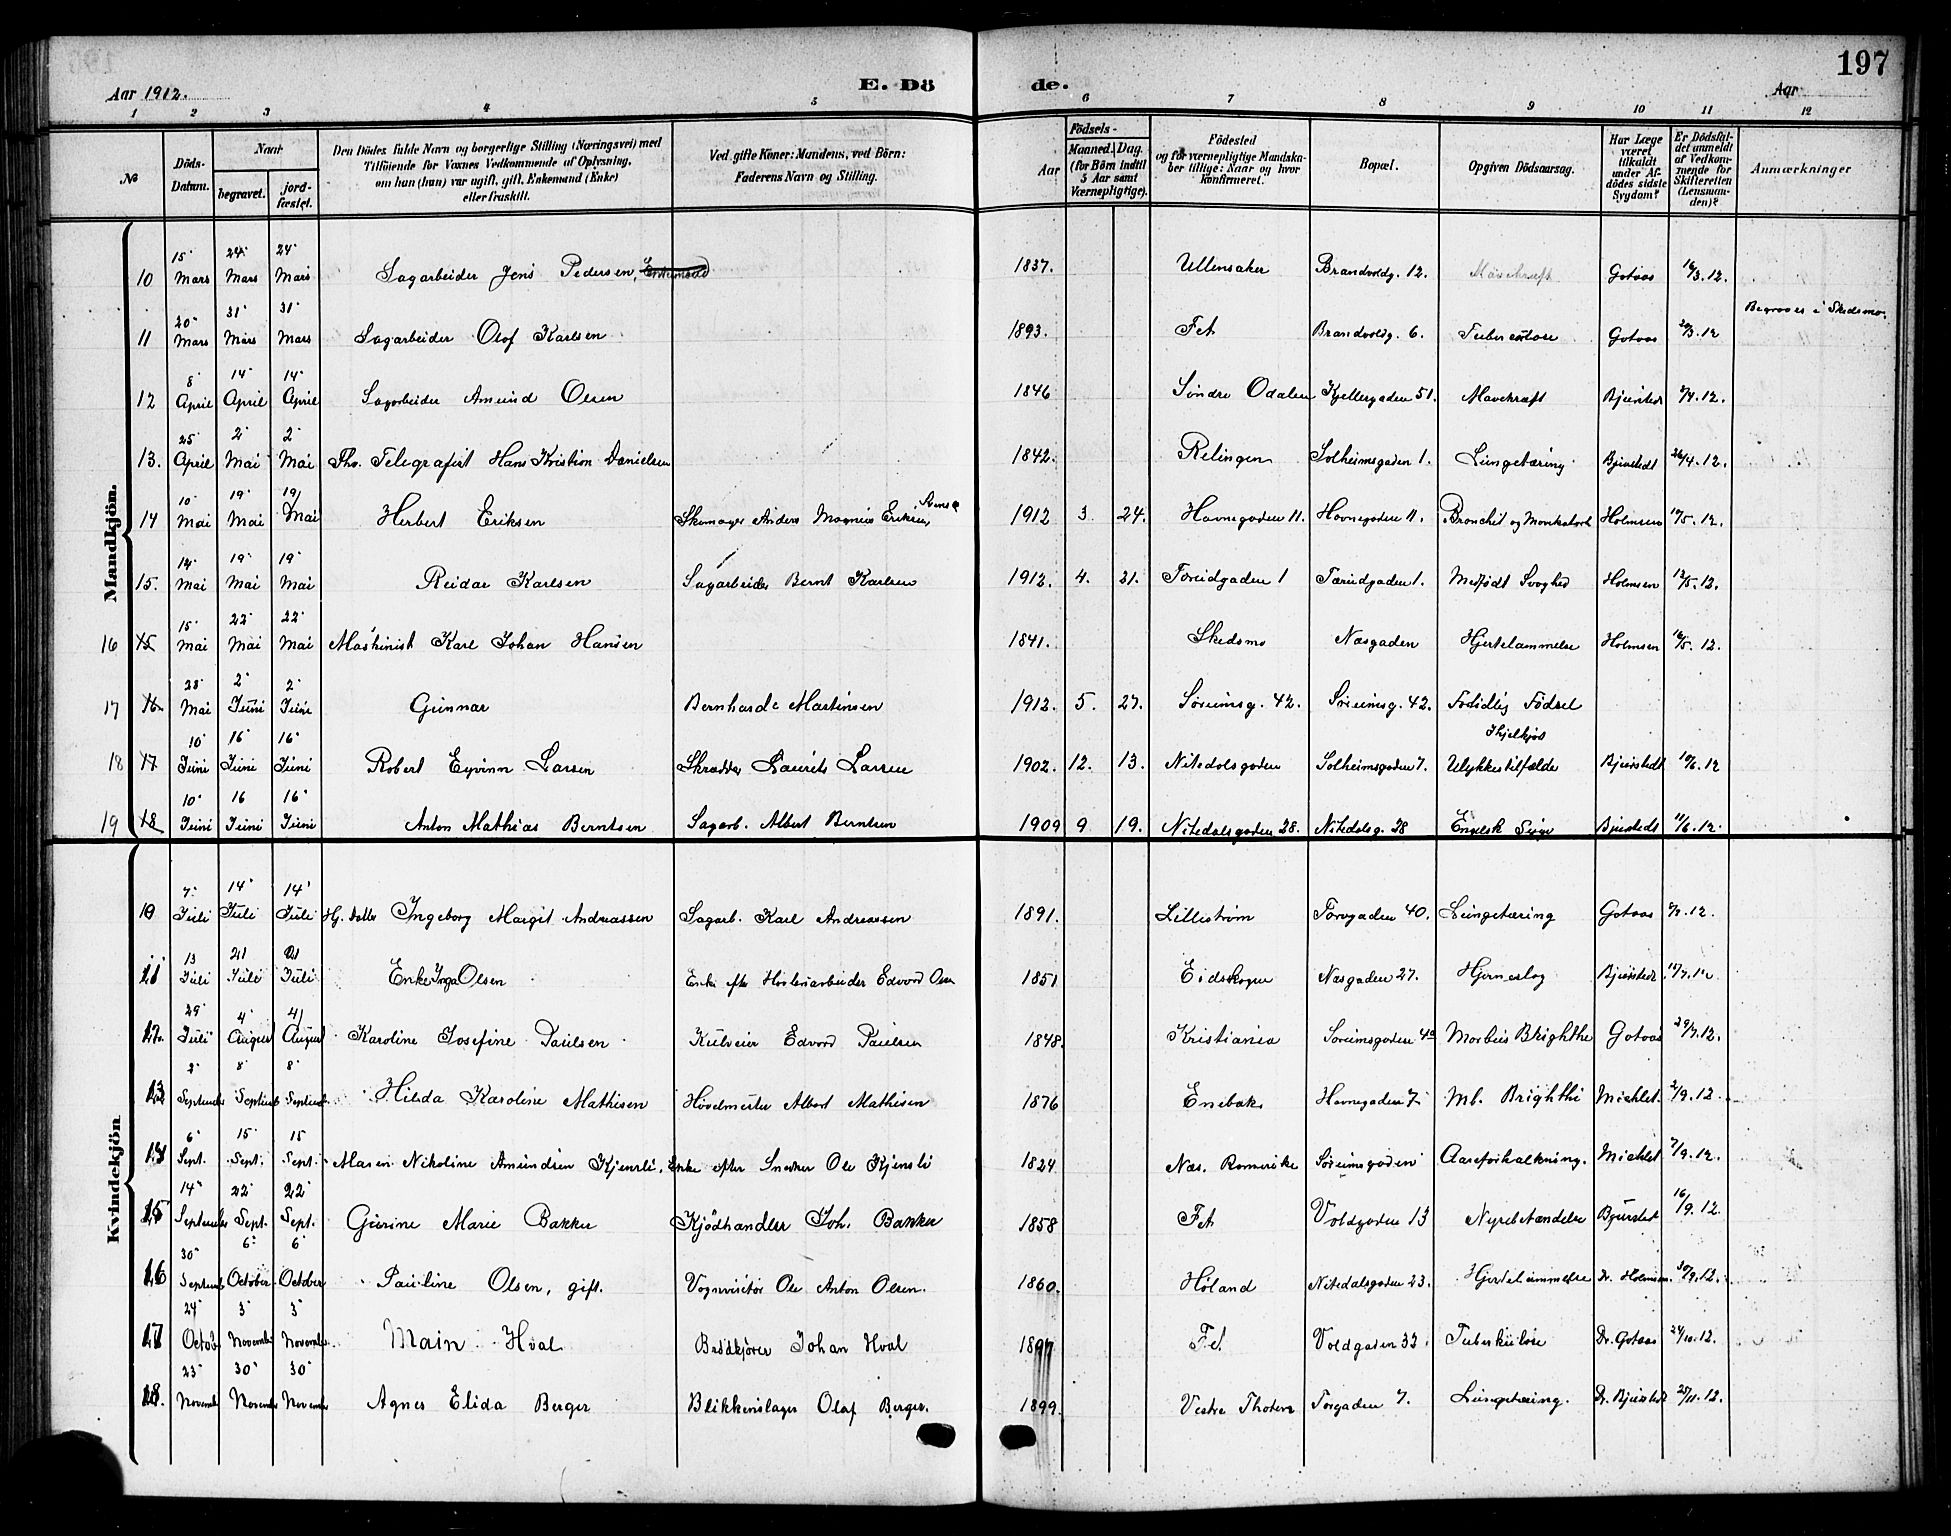 197
Aar 1912. E. Dö de. Aar
1 2 3 4 5 6 7 8 9 10 11 12
No Döds-Datum. Naar begravet. jord-fæstet. Den Dödes fulde Navn og borgerlige Stilling (Næringsvei) med Tilföiende for Voxnes Vedkommende af Oplysning, om han (hun) var ugift, gift, Enkemand (Enke) eller fraskilt. Ved gifte Koner: Mandens, ved Börn: Faderens Navn og Stilling. Födsels- Aar Maaned. Dag. (for Börn indtil 5 Aar samt Værnepligtige). Födested og for værnepligtige Mandskaber tillige: Naar og hvor konfirmeret. Bopæl. Opgiven Dödsaarsag. Har Læge været tilkaldt under Afdödes sidste Sygdom? Er Dödsfaldet anmeldt af Vedkommende for Skifteretten (Lensmanden)? Anmærkninger
Mandkjön.
10 15' Mars 24' Mars 24' Mars Sagarbeider Jens Pedersen, 1837. Ullensaker Brandvoldg. 12. Mavekræft Gotaas 16/3.12.
11 20' Mars 31' Mars 31' Mars Sagarbeider Olof Karlsen 1893. Fet Brandvoldg. 6. Tuberculose Gotaas 20/3.12 Begraves i Skedsmo.
12 8' April 14' April 14' April Sagarbeider Amund Olsen 1846 Söndre Odalen Kjellergaden 51. Mavekræft Bjurstedt /4.12.
13. 25 April 2' Mai 2' Mai Fhv. Telegrafist Hans Kristian Danielsen 1842. Relingen Solheimsgaden 1. Lungetæring Bjurstedt 26/4.12.
14 10' Mai 19' Mai 19/ Mai Herbert Eriksen Skomager Anders Magnus Eriksen, 1912 3. 24. Havnegaden 11. Havnegaden 11. Bronchit og Holmsen /5.12.
15. 14' Mai 19' Mai 19' Mai Reidar Karlsen Sagarbeider Bernt Karlsen 1912. 4. 21. Toreidgaden 1 Toreidgaden 1. Medfødt Svaghed Holmsen /5.12.
16 15 15' Mai 22' Mai 22' Mai Maskinist Karl Johan Hansen 1841. Skedsmo Næsgaden Hjertelammelse Holmsen 16/5.12.
17 16 28' Mai 2' Juni 2' Juni Gunnar Bernhard Martinsen 1912. 5. 27. Sørumsg. 42. Sørumsg. 42. Fortidlig Fødsel
18 17 10' Juni 16' Juni 16' Juni Robert Eyvinn Larsen Skrædder Laurits Larsen 1902. 12. 13. Nitedalsgaden Solheimsgaden 7. Ihjelkjørt Ulykkestilfælde Bjurstedt 10/6.12
19 18 10' Juni 16 Juni 16' Juni Anton Mathias Berntsen Sagarb. Albert Berntsen 1909 9 19. Nitedalsgaden 28. Nitedalsg. 28 Engelsk Syge Bjurstedt 11/6.12.
Kvindekjön
10 7' Juli 14' Juli 14' Juli Hj. Datter Ingeborg Margit Andreassen Sagarb. Karl Andreassen 1891. Lillestrøm Torvgaden 40. Lungetæring Gotaas /7.12.
11 13 Juli 21 Juli 21 Juli Enke Inga Olsen Enke efter Edvard Olsen 1851 Eidskogen Næsgaden 27. Hjerneslag Bjurstedt /7.12
12. 29' Juli 4' August 4/ August Karoline Josefine Paulsen Edvard Paulsen 1848. Kristiania Sørumsgaden Morbus Brighthi Gotaas 29/7.12.
13 2' September 8' September 8' September Hilda Karoline Mathisen Høvelmester Albert Mathisen 1876 Enebak Havnegaden 7 Mb. Brighthi Michlet. 2/9.12.
14 6' Sept. 15' Sept. 15 Sept. Maren Nikoline Amundsen Kjensli, Enke efter Snedker Ole Kjensli 1824 Næs. Romerike Sørumsgaden Aareforkalkning. Michlet 7/9.12.
15 14' September 22' Sept. 22' Sept. Gurine Marie Bakker Kjödhandler Joh. Bakker 1858 Fet Voldgaden 13 Nyrebetændelse Bjurstedt 16/9.12.
16 30' September 6' October 6' October Pauline Olsen, gift. Vognvisitør Ole Anton Olsen. 1860. Høland Nitedalsgaden 23. Hjertelammelse Dr. Holmsen. 30/9.12.
17 24' October 3' November 3' November Marn Hval Brødkjører Johan Hval 1897 Fet Voldgaden 32. Tuberkulose Dr. Gotaas 24/10.12.
18. 23' November 30' November 30' November Agnes Elida Berger Blikkenslager Olaf Berger. 1899. Vestre Thoten Torgaden 7. Lungetæring. Dr. Bjurstedt 25/11.12.